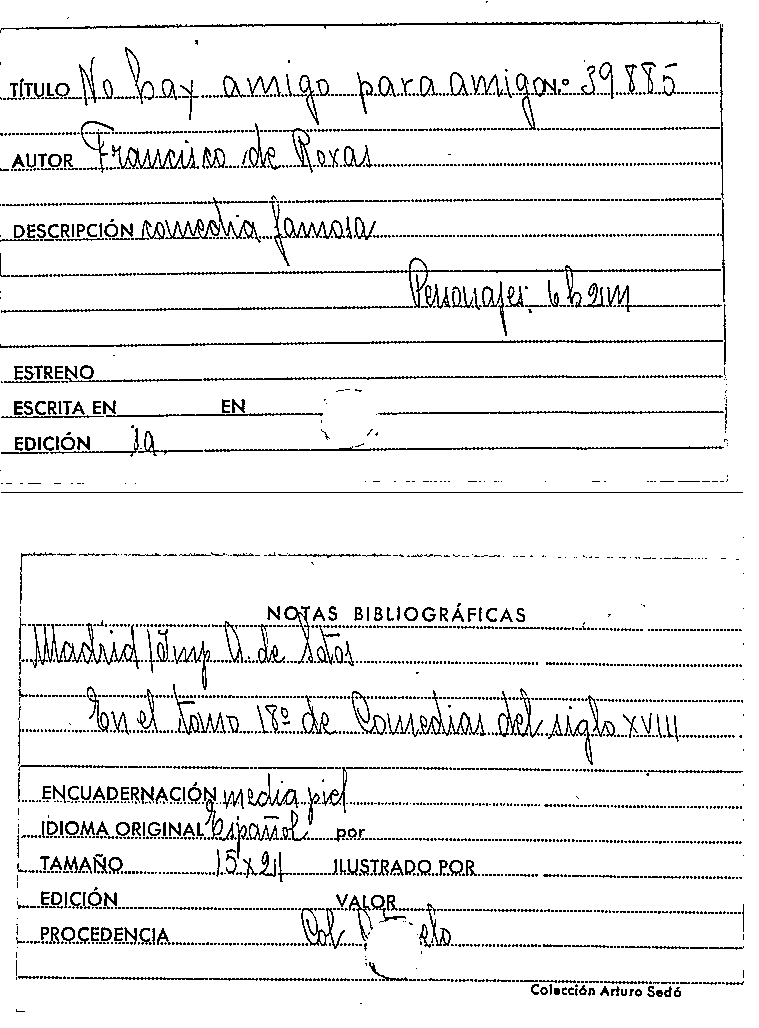 TÍTULO No hay amigo para amigo N.º 39885
AUTOR Francisco de Roxas
DESCRIPCIÓN comedia famosa
Personajes: 6 h 2 m
ESTRENO
ESCRITA EN EN
EDICIÓN 1a.
NOTAS BIBLIOGRÁFICAS
Madrid / Imp A. de Sotos
En el tomo 18º de Comedias del siglo XVIII
ENCUADERNACIÓN media piel
IDIOMA ORIGINAL Español por
TAMAÑO 15 x 21 ILUSTRADO POR
EDICIÓN VALOR
PROCEDENCIA Col
Colección Arturo Sedó